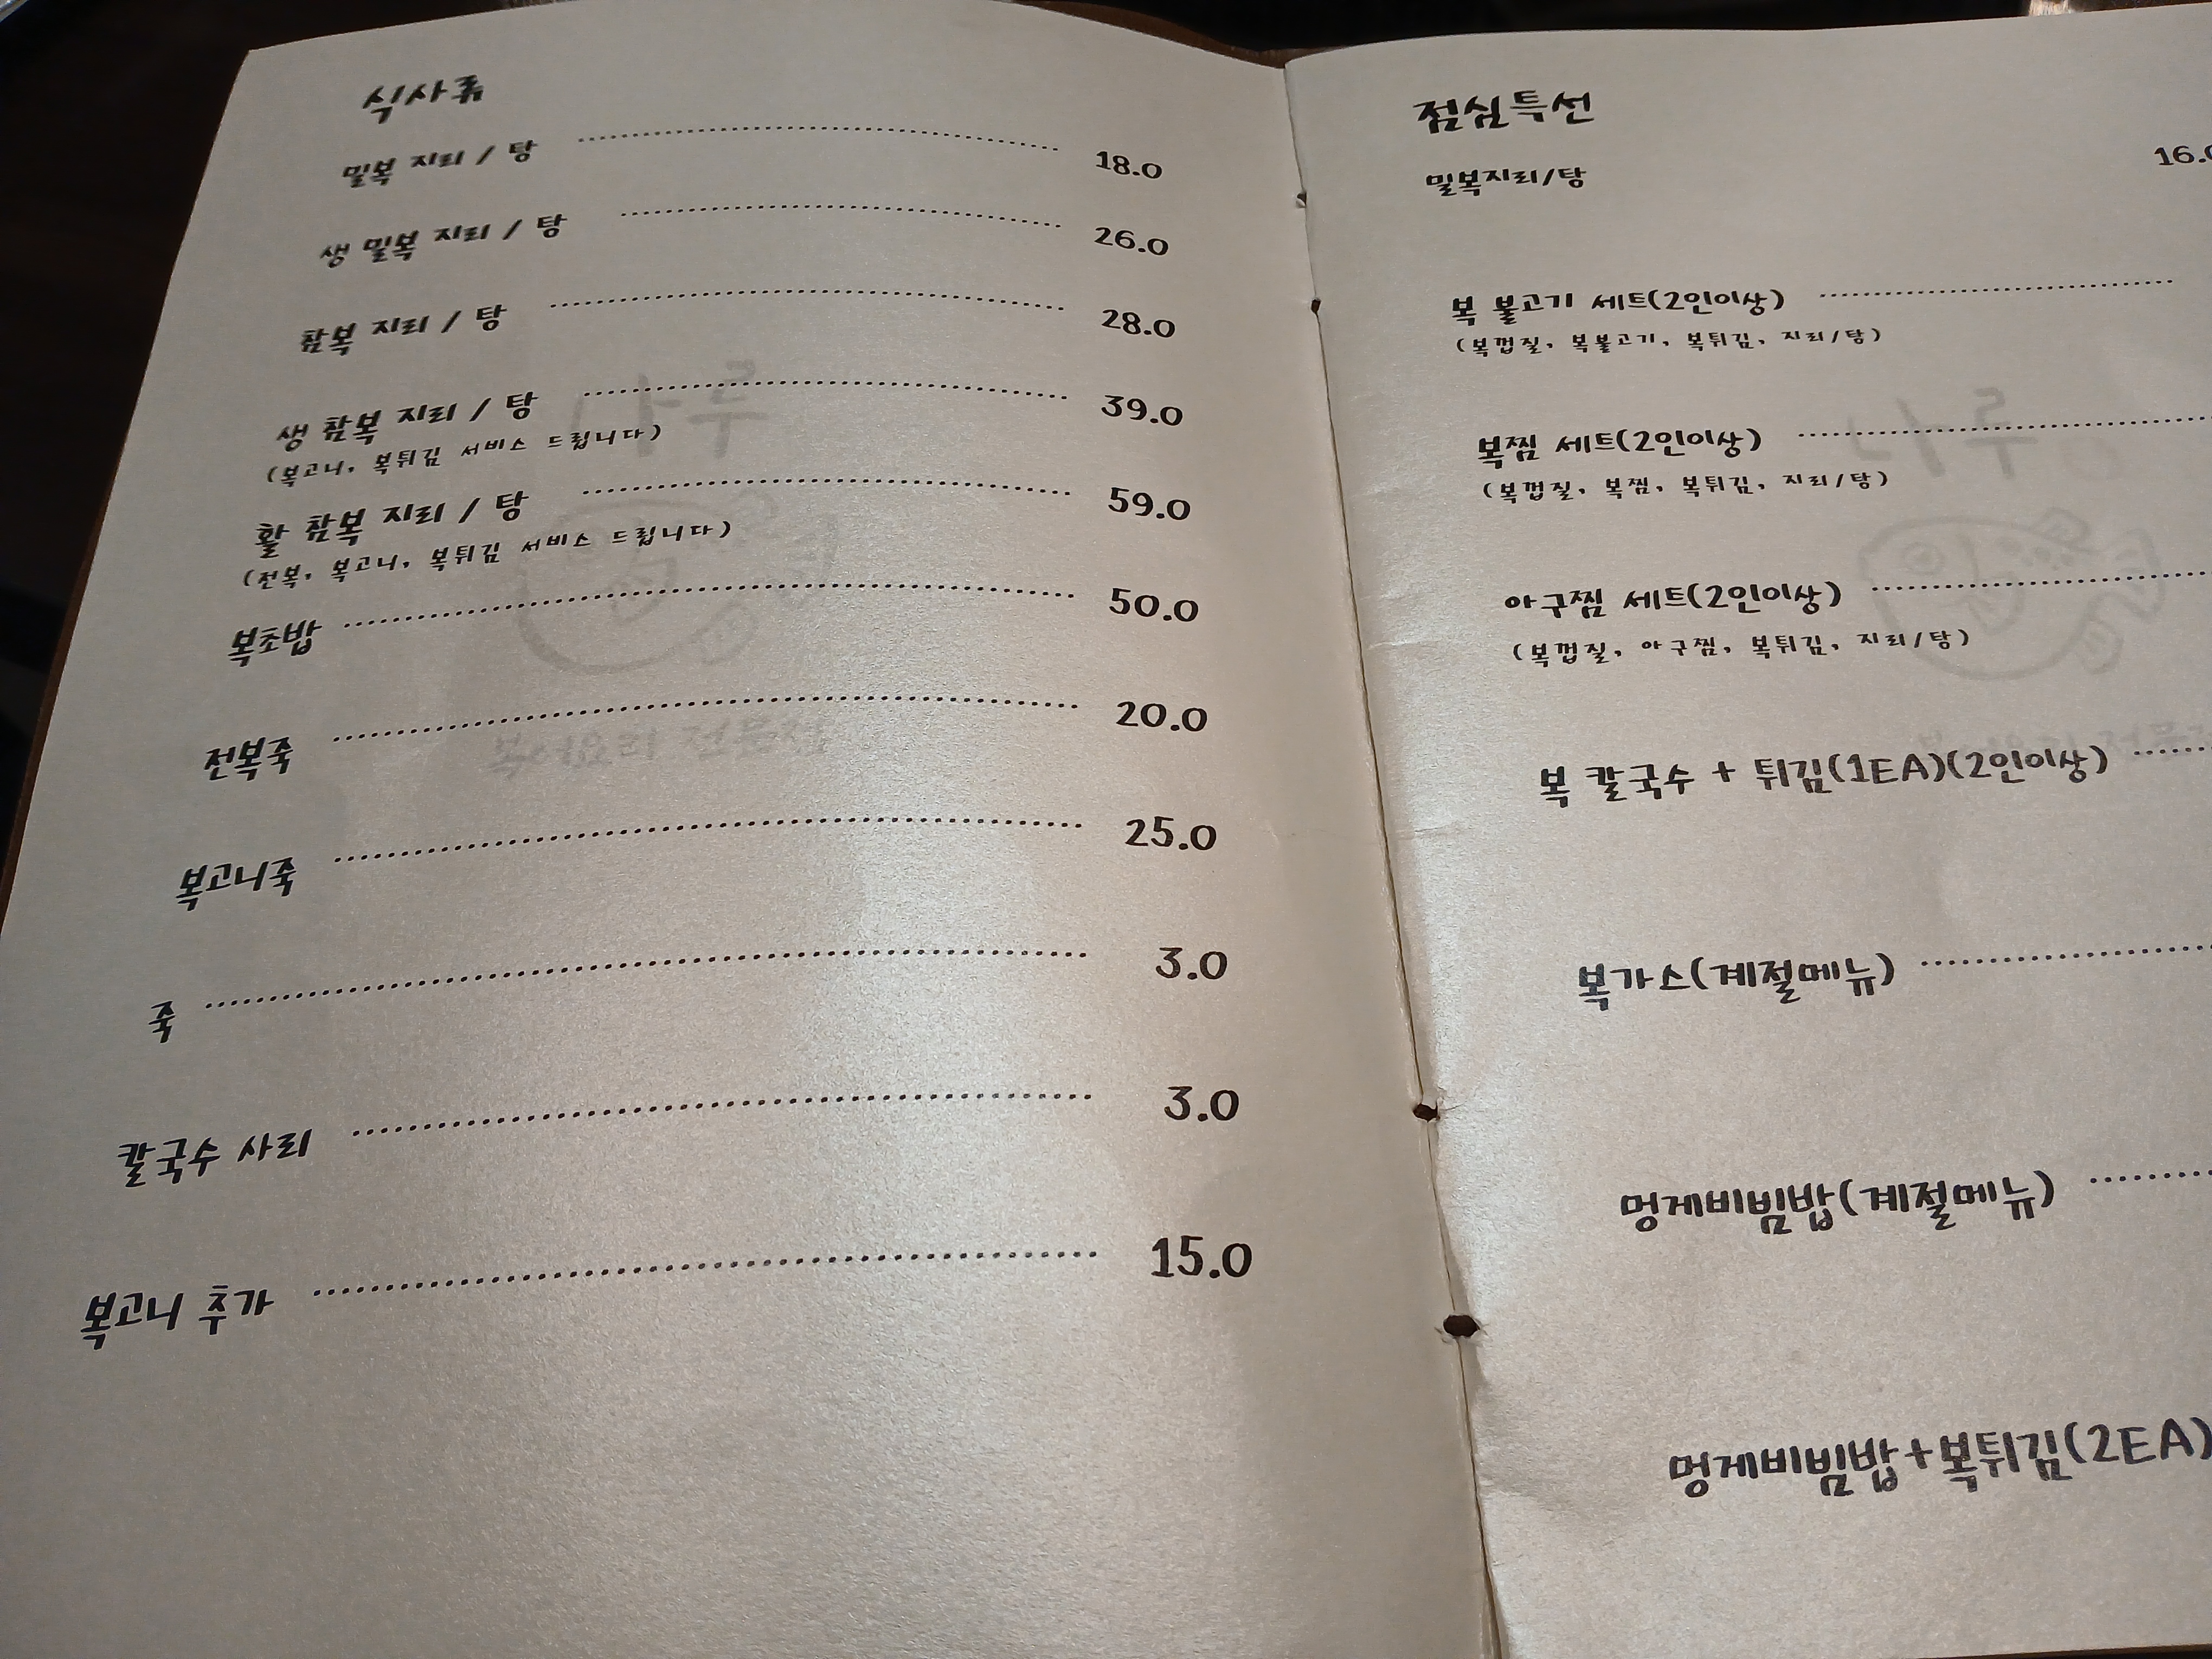 식사류
밀복 지리 / 탕 18.0
생 밀복 지리 / 탕 26.0
참복 지리 / 탕 28.0
생 참복 지리 / 탕 39.0
(복고니, 복튀김 서비스 드립니다)
활 참복 지리 / 탕 59.0
(전복, 복고니, 복튀김 서비스 드립니다)
복초밥 50.0
전복죽 20.0
복고니죽 25.0
죽 3.0
칼국수 사리 3.0
복고니 추가 15.0
점심특선
밀복지리/탕 16.0
복 불고기 세트(2인이상)
(복껍질, 복불고기, 복튀김, 지리/탕)
복찜 세트(2인이상)
(복껍질, 복찜, 복튀김, 지리/탕)
아구찜 세트(2인이상)
(복껍질, 아구찜, 복튀김, 지리/탕)
복 칼국수 + 튀김(1EA)(2인이상)
복가스(계절메뉴)
멍게비빔밥(계절메뉴)
멍게비빔밥+복튀김(2EA)